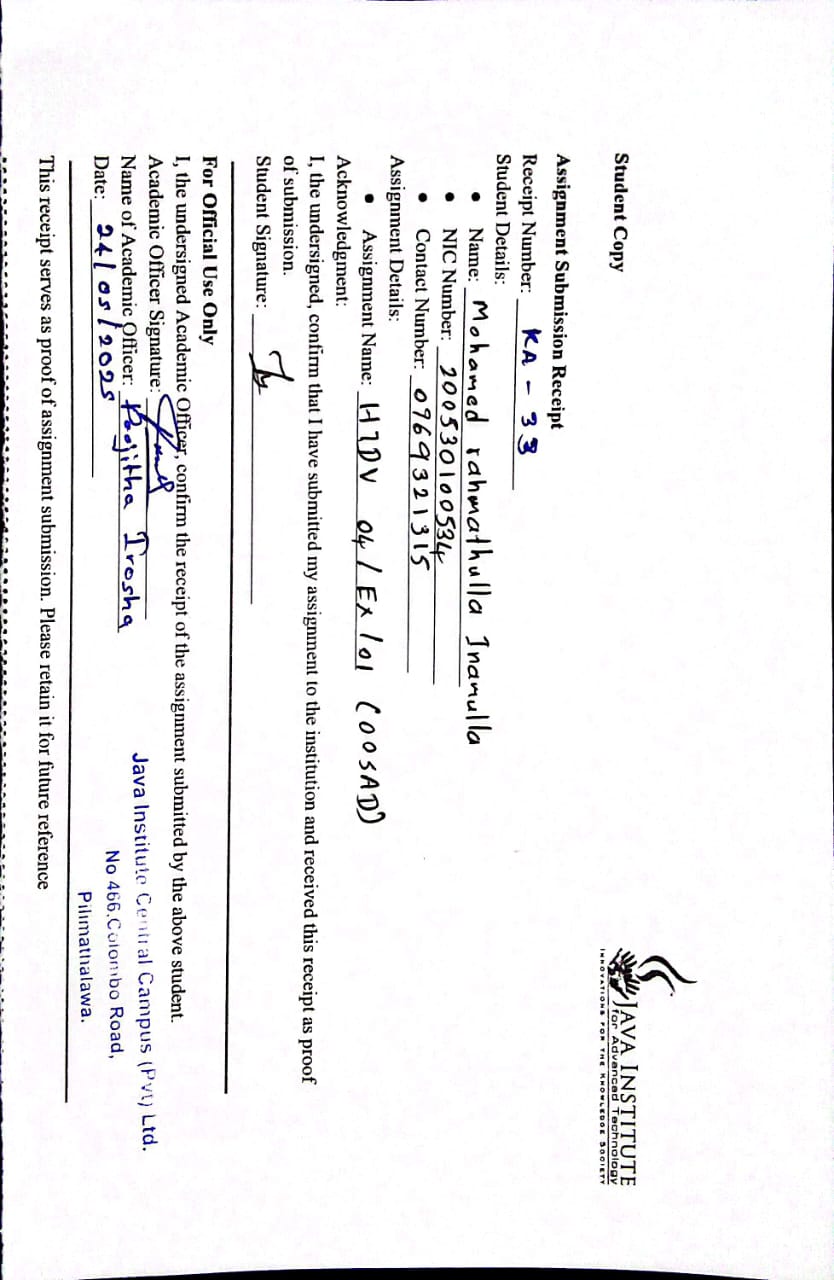 Student Copy
JAVA INSTITUTE
for Advanced Technology
INNOVATIONS FOR THE KNOWLEDGE SOCIETY
Assignment Submission Receipt
Receipt Number: KA - 33
Student Details:
• Name: Mohamed rahmathulla Inamulla
• NIC Number: 200530100534
• Contact Number: 0969321315
Assignment Details:
• Assignment Name: H7DV 04 / Ex / 01 (OOSAD)
Acknowledgment:
I, the undersigned, confirm that I have submitted my assignment to the institution and received this receipt as proof
of submission.
Student Signature:
For Official Use Only
I, the undersigned Academic Officer, confirm the receipt of the assignment submitted by the above student.
Academic Officer Signature:
Name of Academic Officer: Poojitha Irosha
Date: 24/05/2025
Java Institute Central Campus (Pvt) Ltd.
No 466,Colombo Road,
Pilimathalawa.
This receipt serves as proof of assignment submission. Please retain it for future reference